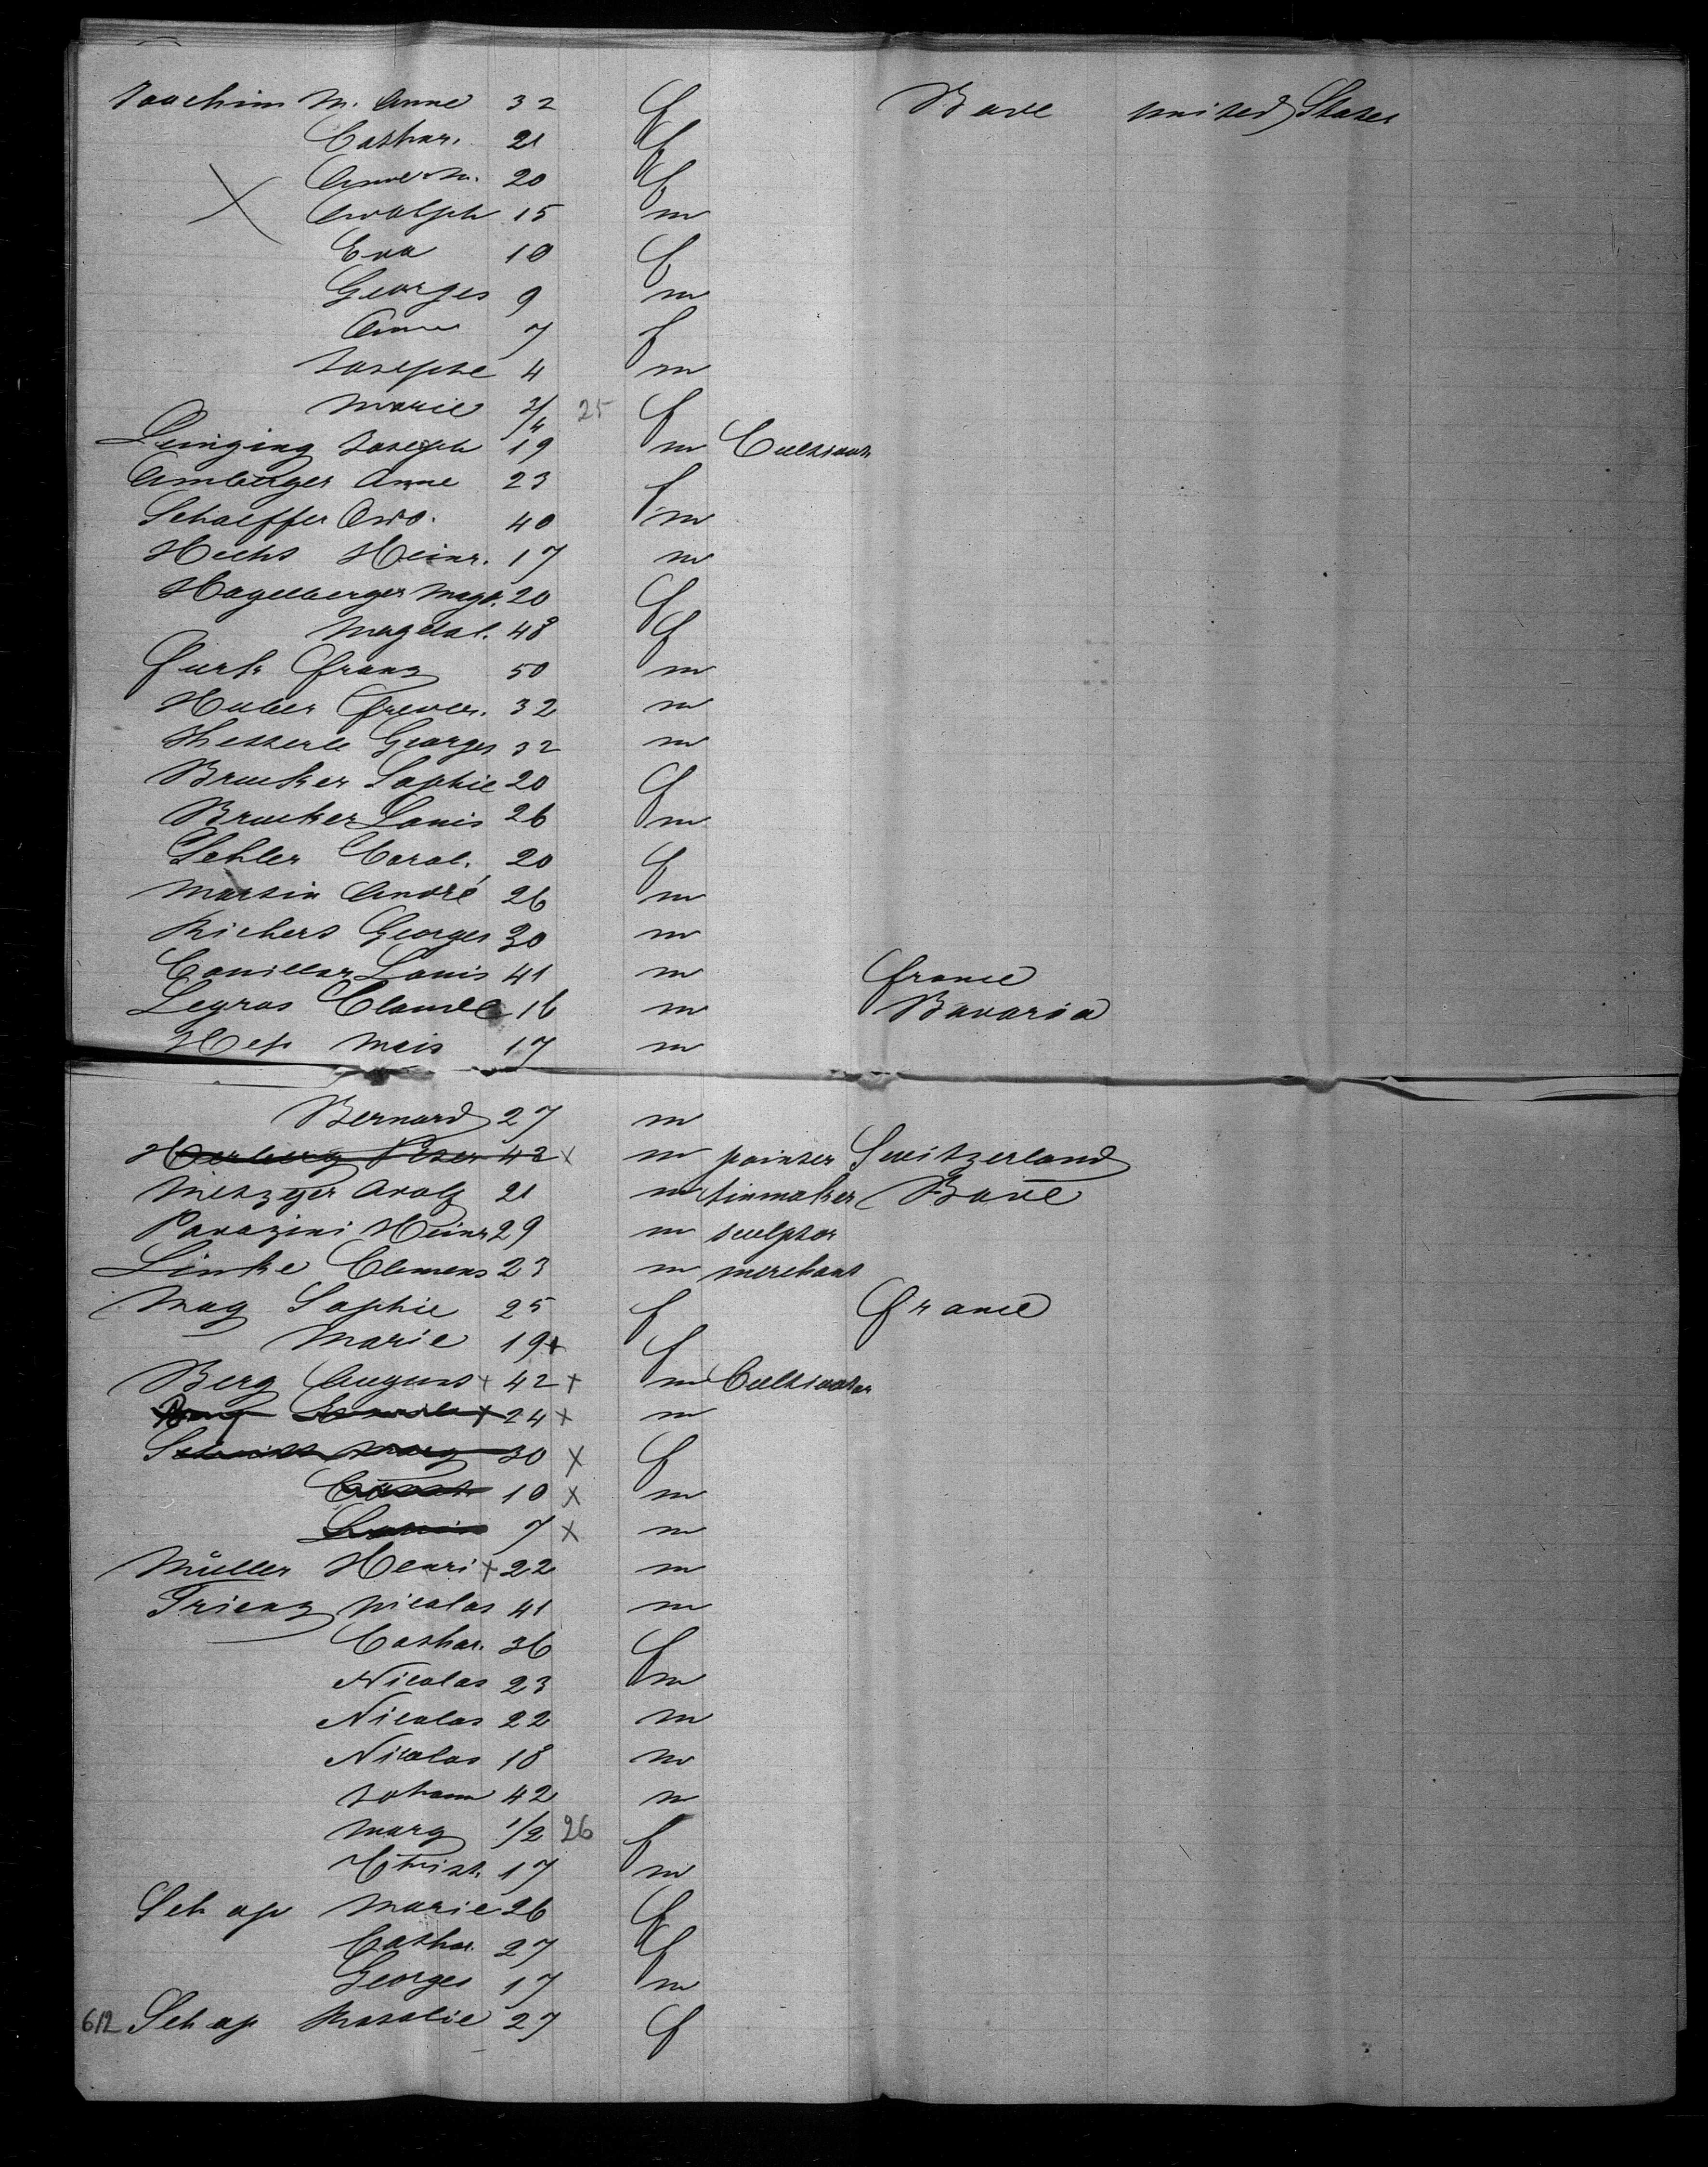 Joachim M. Anne 32 f Bade United States
Cathar. 21 f
Anne M. 20 f
Adolph 15 m
Eva 10 f
Georges 9 m
Anna 7 f
Josephe 4 m
Marie 3/4 25 f
Leinzing Joseph 19 m Cultivat
Amberger Anne 23 f
Schaeffer Ado. 40 m
Hecht Heinr. 17 m
Hagelberger Magd. 20 f
Magdal. 48 f
Furk Franz 50 m
Huber Freder. 32 m
Georges 32 m
Brucker Sophie 20 f
Brucker Louis 26 m
Sehler Carol. 20 f
Martin André 26 m
Richert Georges 30 m
Couillar Louis 41 m France
Legras Claude 16 m Bavaria
Hep 17 m
Bernard 27 m
Herberg Peter 42 x m painter Switzerland
Metzger Adolf 21 m tinmaker Bade
Pavazini Heinr 29 m sculptor
Linke Clemens 23 m merchant
May Sophie 25 f France
Marie 19 x f
Berg August x 42 x m Cultivator
Berg x 24 x m
Schmidt Marg 30 x f
10 x m
Louis 7 x m
Müller Henri x 22 m
Trienz Nicolas 41 m
Cathar. 36 f
Nicolas 23 m
Nicolas 22 m
Nicolas 18 m
Johann 42 m
Marg 1/2 26 f
Christ. 17 m
Schap Marie 26 f
Cathar. 27 f
Georges 17 m
612 Schap Rosalie 27 f